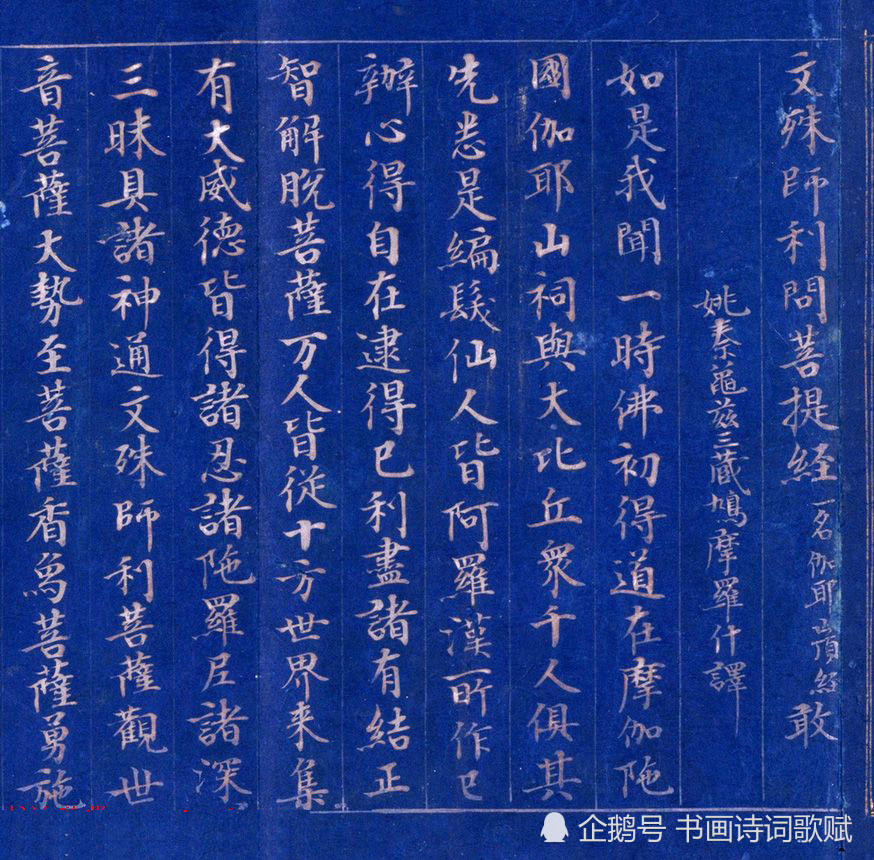 文殊師利問菩提経一名伽耶山頂経敢
姚秦龜茲三藏鳩摩羅什譯
如是我聞一時佛初得道在摩伽陁
國伽耶山祠與大比丘衆千人俱其
先悉是編髮仙人皆阿羅漢所作已
辦心得自在逮得已利盡諸有結正
智解脫菩薩万人皆從十方世界来集
有大威德皆得諸忍諸陁羅尼諸深
三昧具諸神通文殊師利菩薩觀世
音菩薩大勢至菩薩香象菩薩勇施
企鹅号 书画诗词歌赋